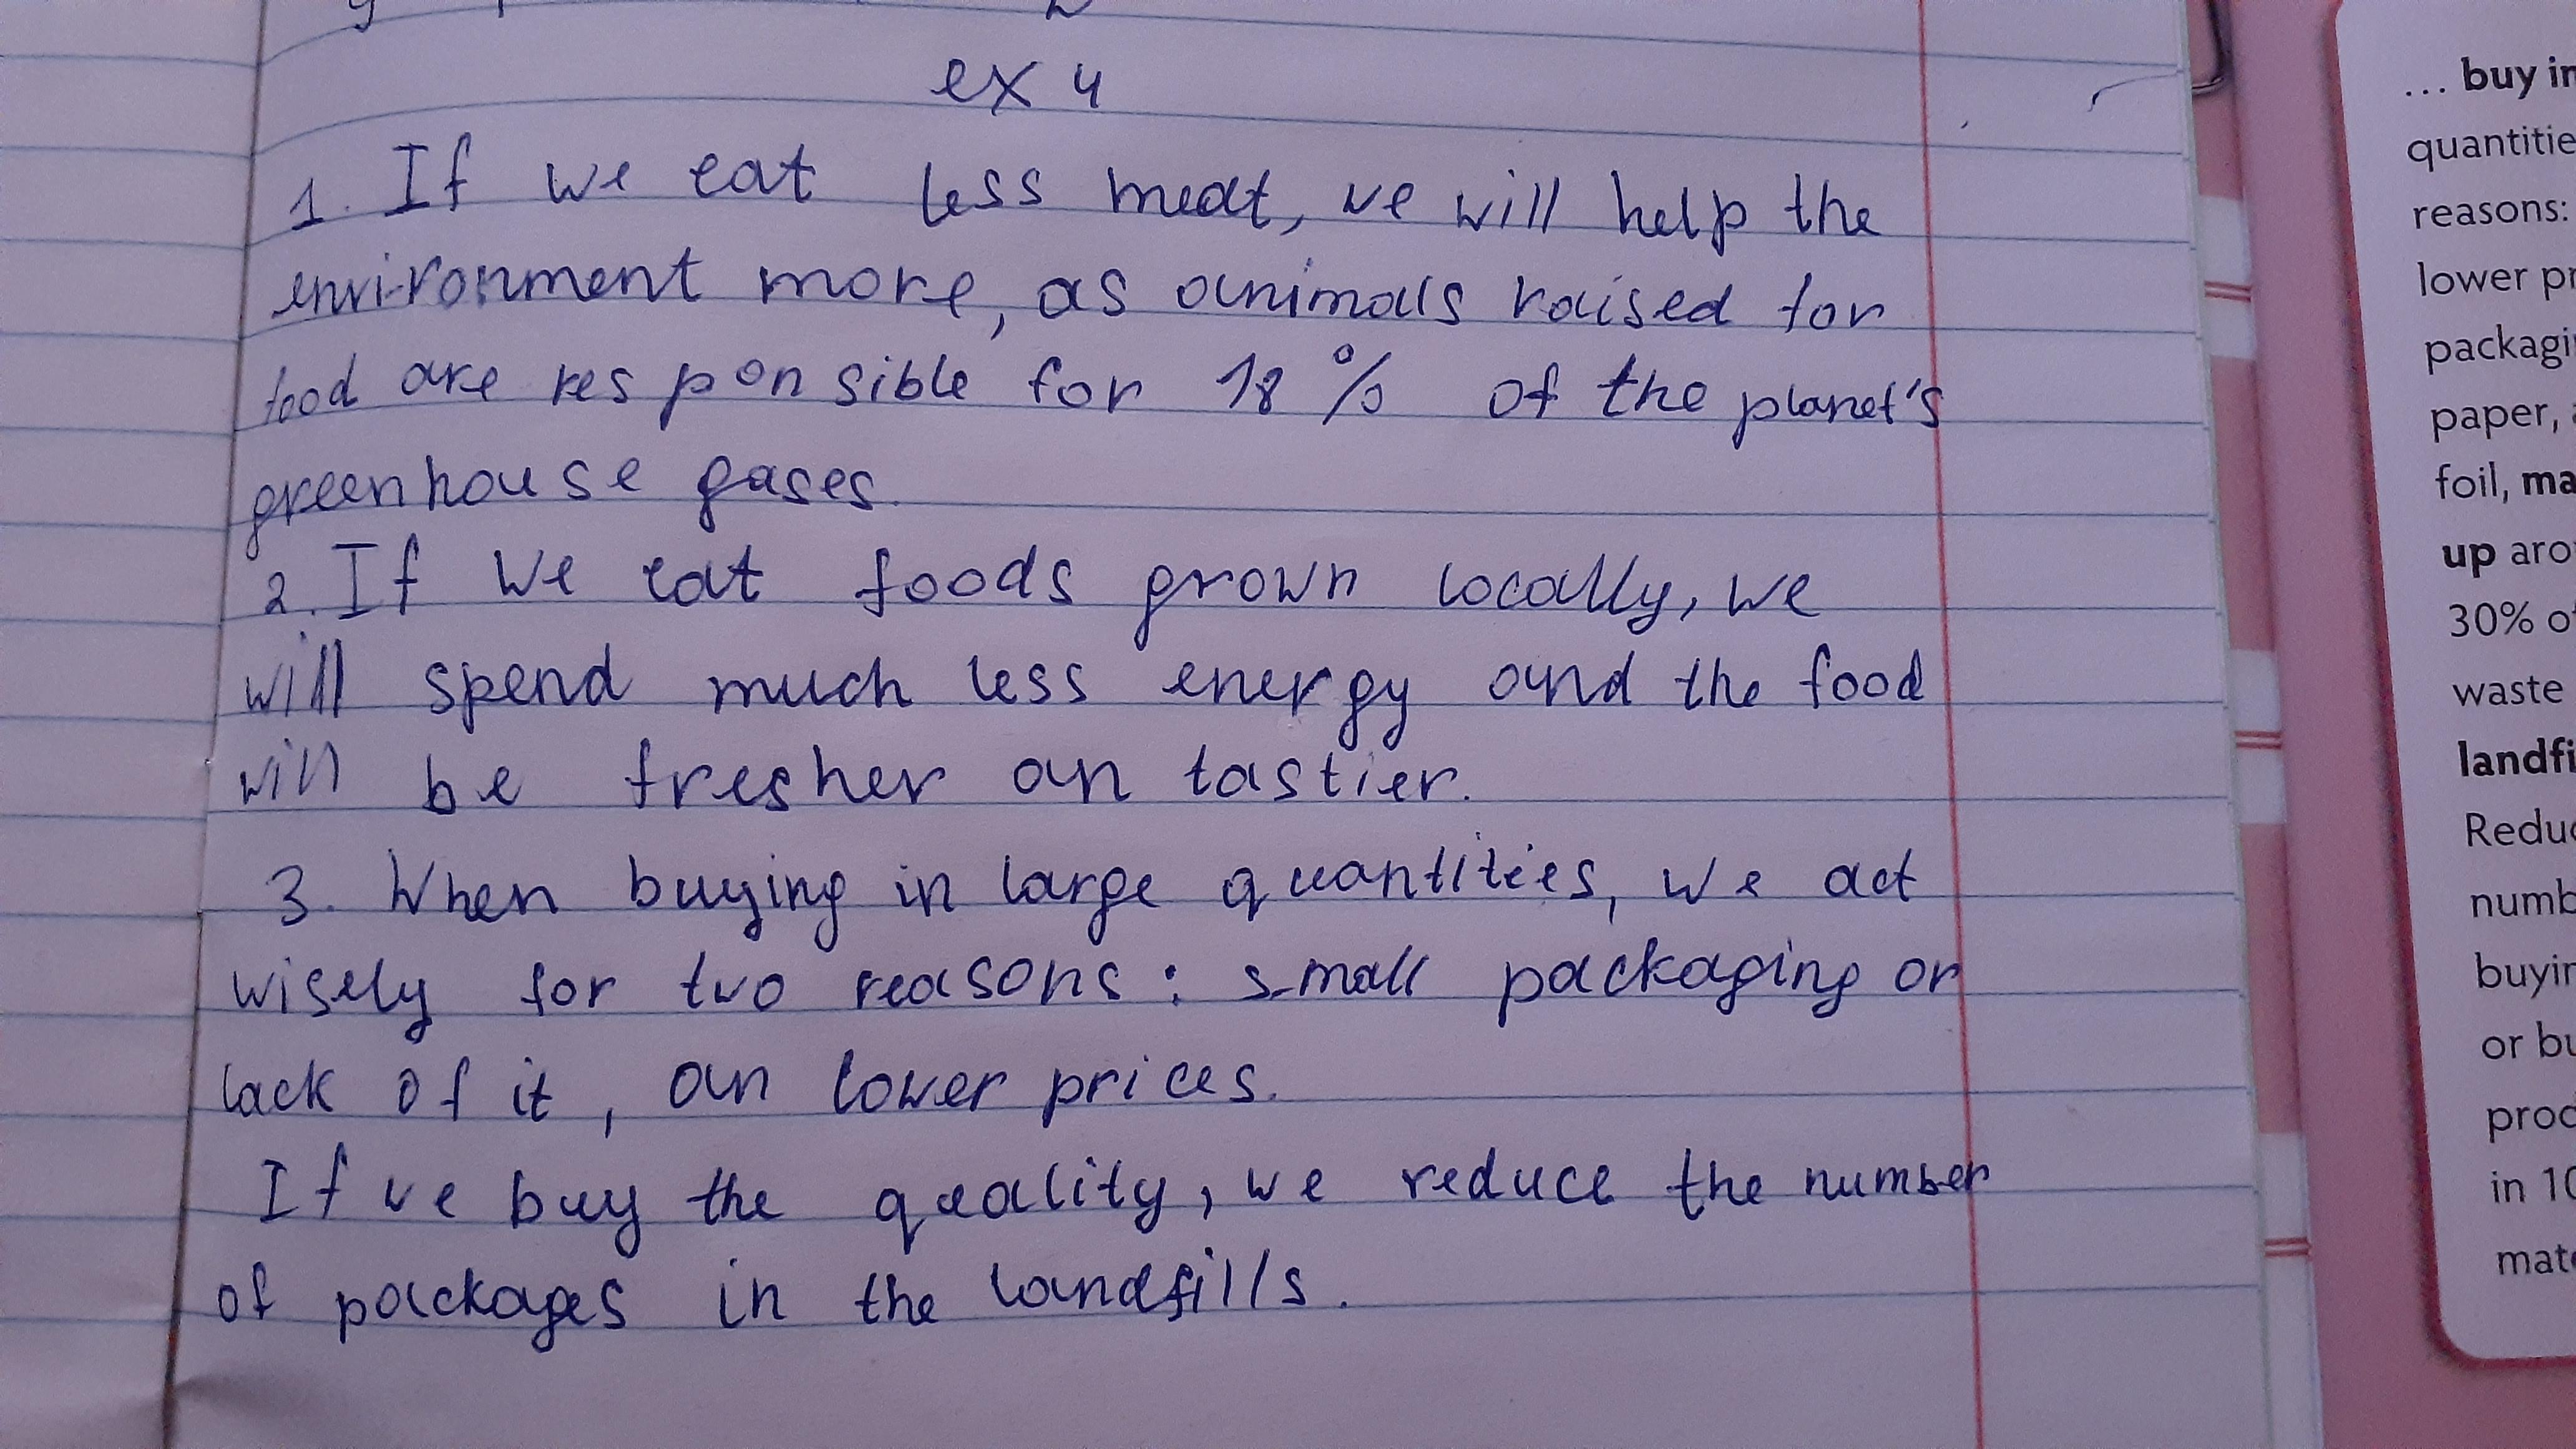 ex 4
1. If we eat less meat, we will help the
environment more, as animals raised for
food are responsible for 18% of the planet's
greenhouse gases.
2. If we eat foods grown locally, we
will spend much less energy and the food
will be fresher an tastier.
3. When buying in large quantities, we act
wisely for two reasons: small packaging or
lack of it, an lower prices.
If we buy the quality, we reduce the number
of packages in the landfills.
... buy in
quantitie
reasons:
lower pr
packagi
paper,
foil, ma
up aro
30% o
waste
landfi
Redu
numb
buyin
or bu
prod
in 10
mate